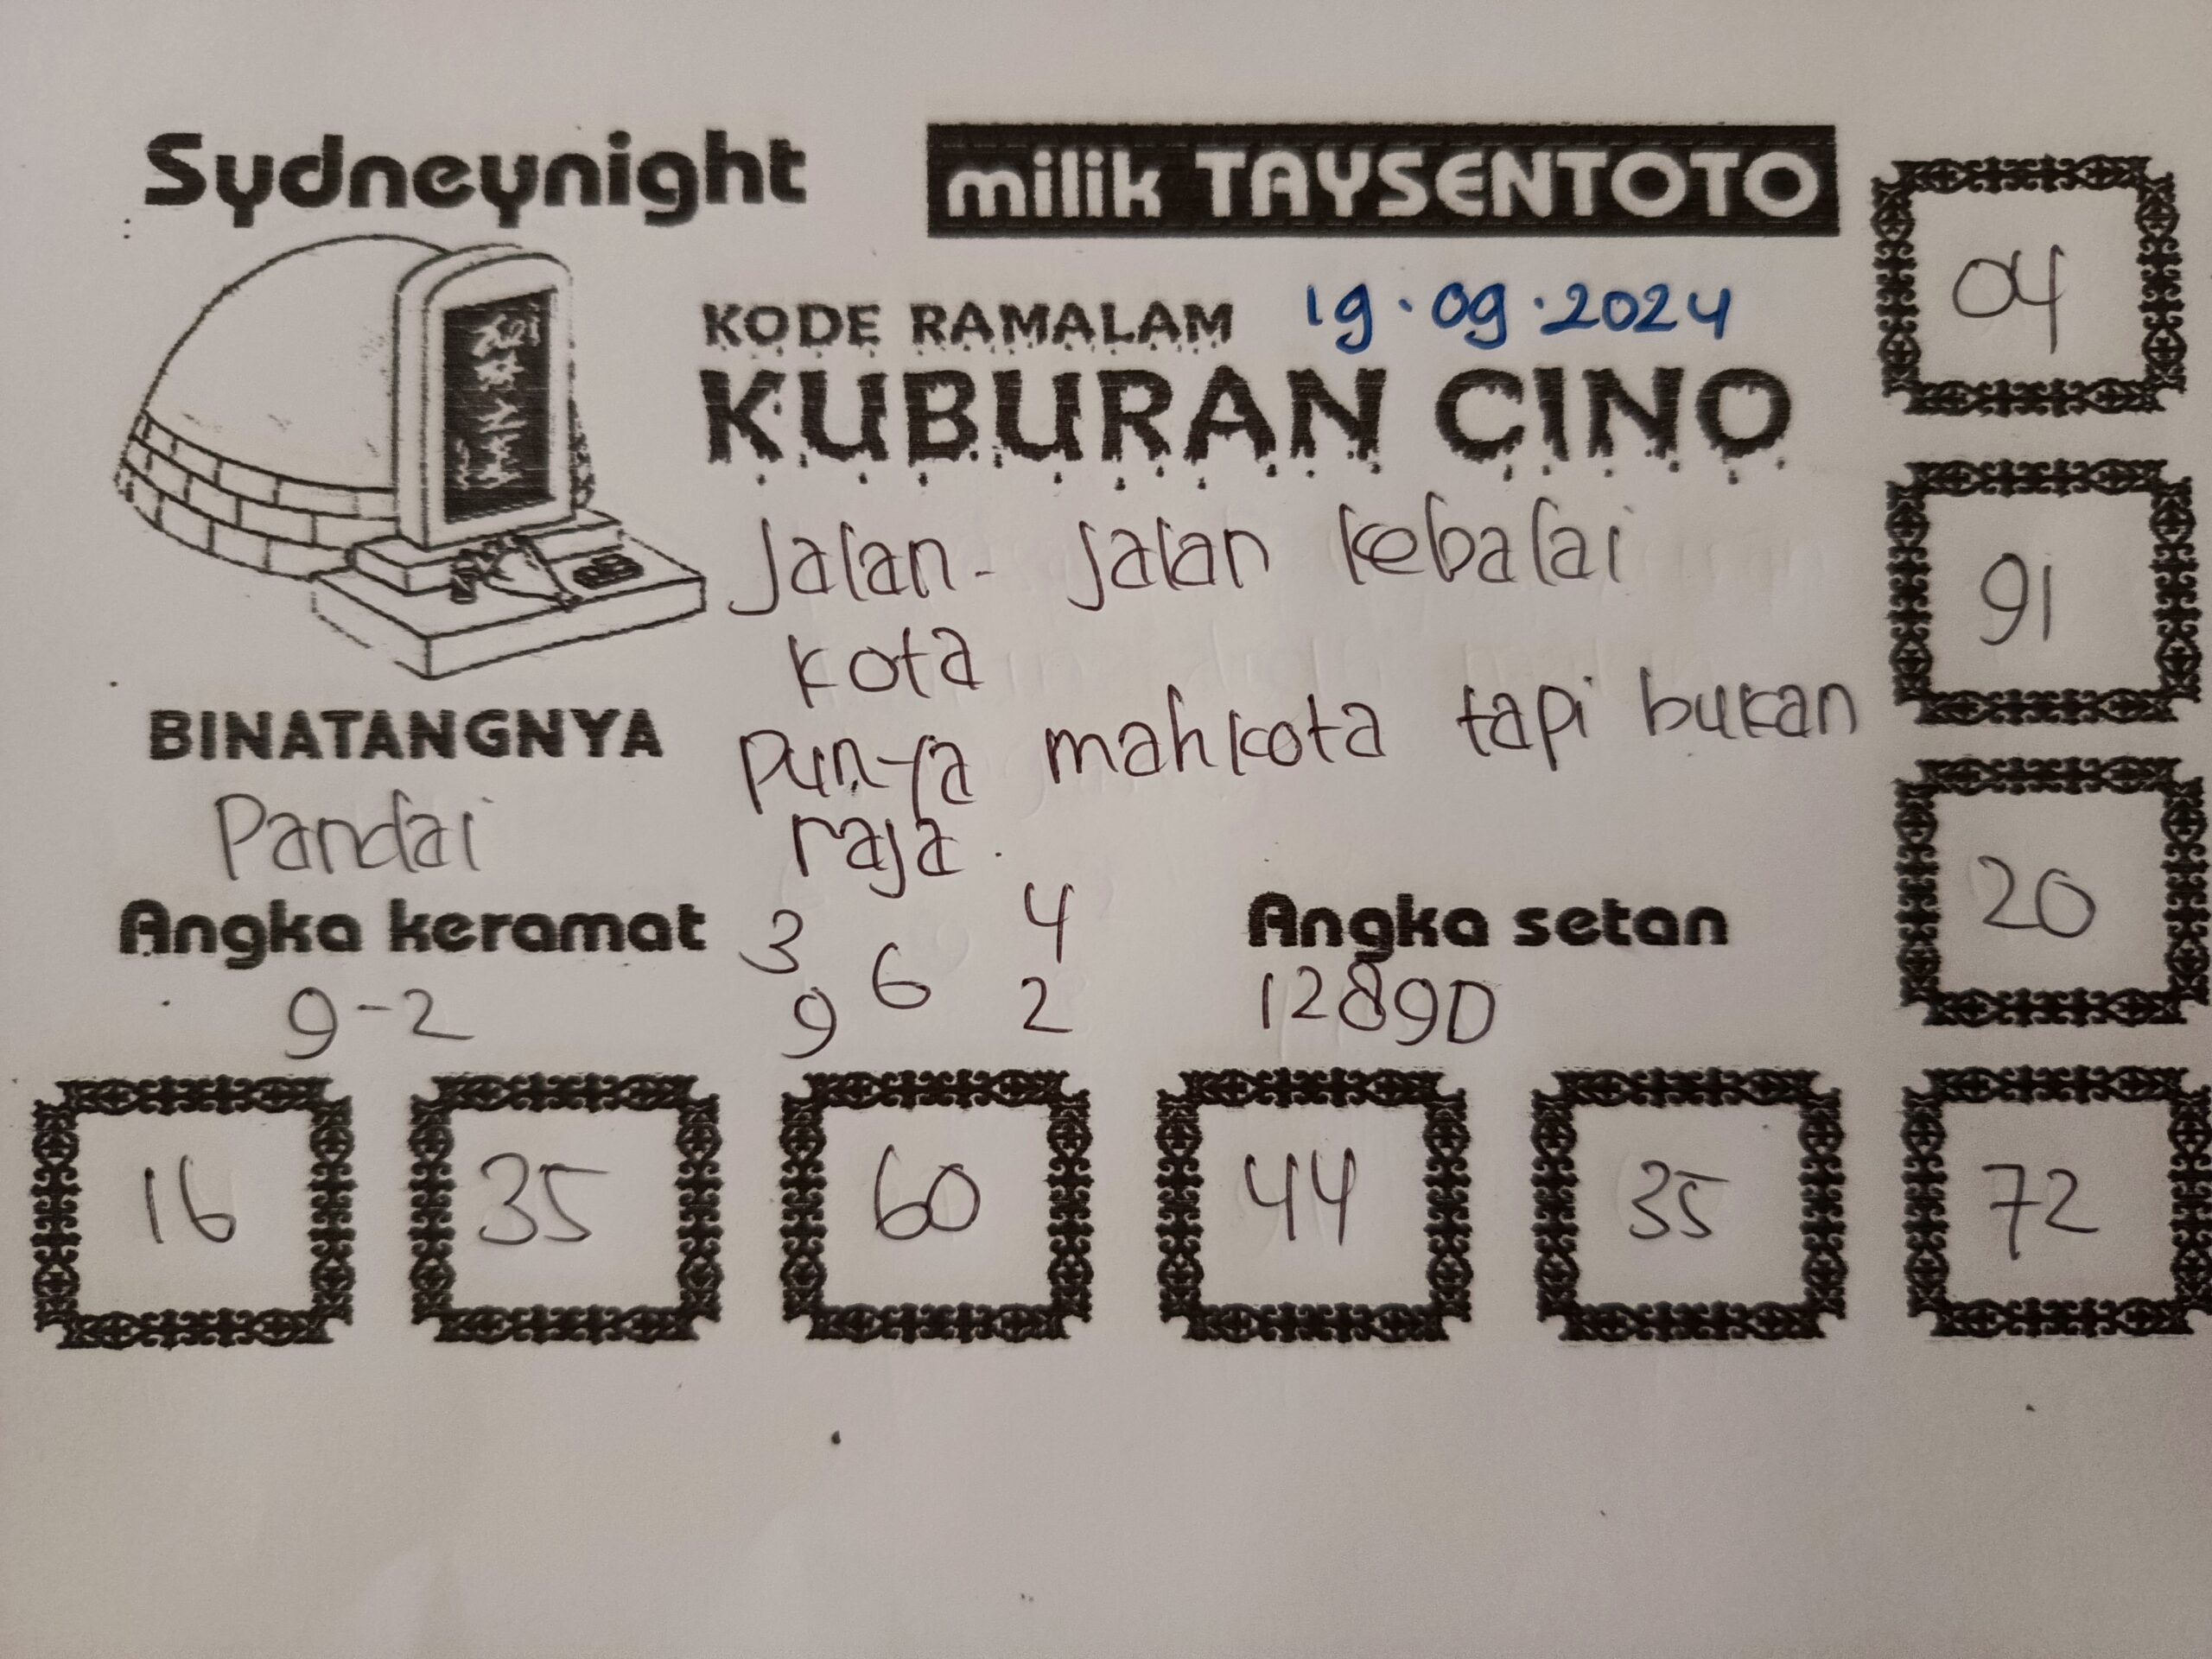 Sydneynight
milik TAYSENTOTO
KODE RAMALAM 19.09.2024
KUBURAN CINO
Jalan- jalan kebalai
kota
Punya mahkota tapi bukan
raja.
BINATANGNYA
Pandai
Angka keramat
9-2
3 4
6
9 2
Angka setan
12890
04
91
20
16 35 60 44 35 72